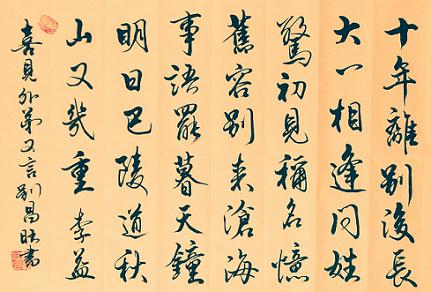 十年離别後長
大一相逢問姓
驚初見稱名憶
舊容别来滄海
事語罷暮天鐘
明日巴陵道秋
山又幾重李益
喜見外弟又言别昌書